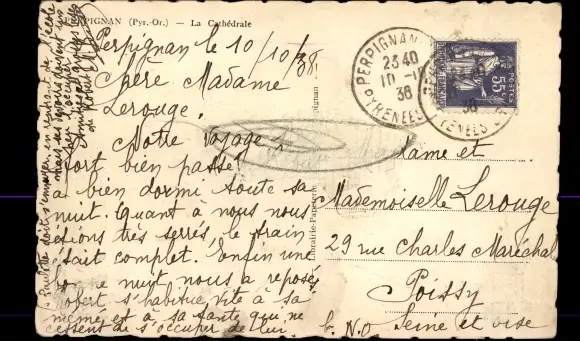 PERPIGNAN (Pyr.-Or.) — La Cathédrale
Perpignan le 10/10/38
Chère Madame
Lerouge,
Notre voyage
sort bien passé
a bien dormi toute sa
nuit. Quant à nous nous
étions très serrés, le train
était complet. Enfin une
bonne nuit nous a reposé
Robert s'habitue vite à sa
mémé et à sa tante qui ne
cessent de s'occuper de lui.
Paulette doit s'ennuyer en rentrant de l'école
de Robert
Librairie-Papeterie
Perpignan
PERPIGNAN
2340
10 -10
38
PYRENEES
PYRENEES OR
POSTES
55c
Madame et
Mademoiselle Lerouge
29 rue Charles Maréchal
Poissy
Seine et oise